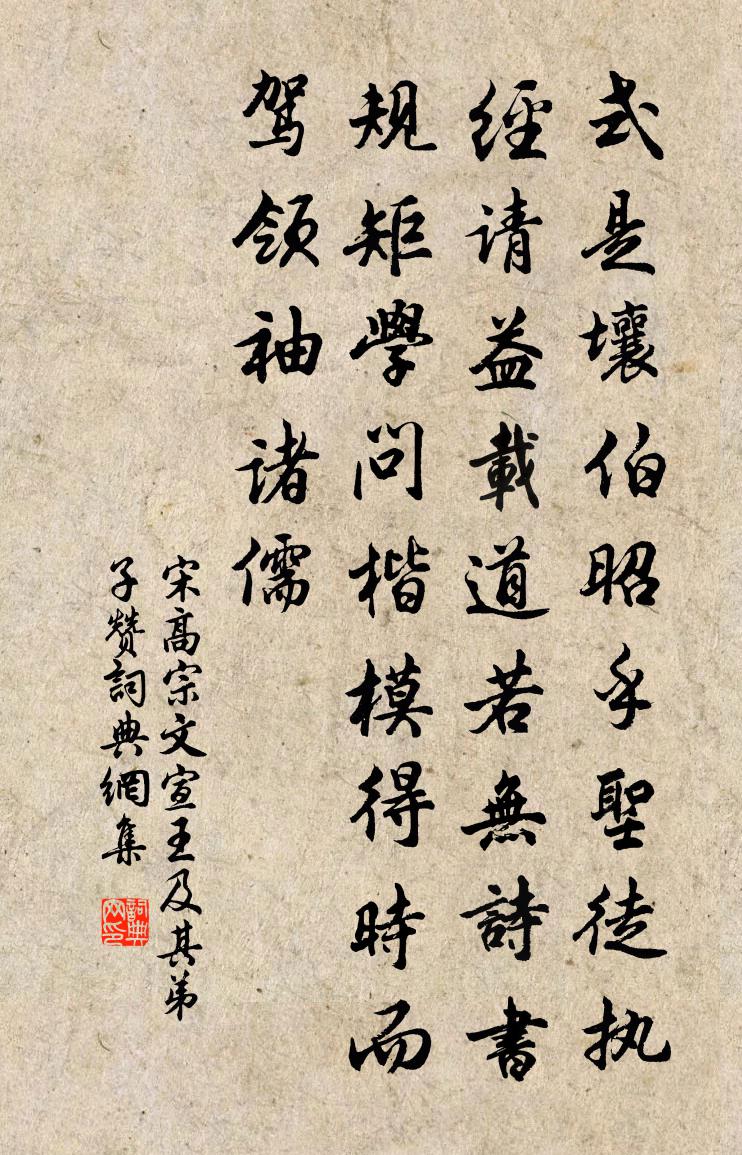 式是壤伯昭乎聖徒执
經请益載道若無詩書
规矩學问楷模得時而
驾领袖诸儒
宋高宗文宣王及其弟
子赞詞典網集
詞典网印